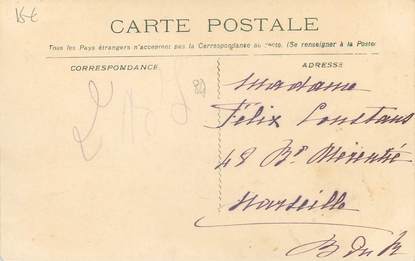 15€
CARTE POSTALE
Tous les Pays étrangers n'acceptent pas la Correspondance au recto. (Se renseigner à la Poste)
CORRESPONDANCE
ADRESSE
Madame
Félix Constans
48 Bd Mérentié
Marseille
B du R